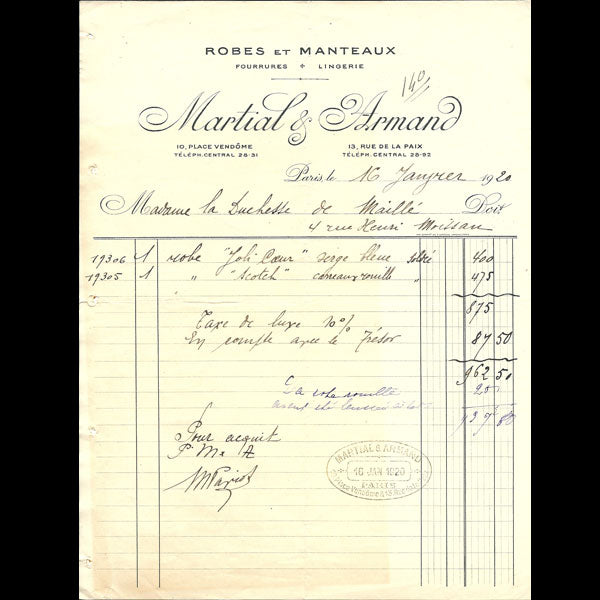 140
ROBES ET MANTEAUX
FOURRURES + LINGERIE
Martial & Armand
10, PLACE VENDÔME 13, RUE DE LA PAIX
TÉLÉPH. CENTRAL 28-31 TÉLÉPH. CENTRAL 28-92
Paris le 16 Janvier 1920
Madame la Duchesse de Maillé Doit
4 rue Henri Moissan
19306 1 robe "Joli Cœur" serge bleue soldé 400
19305 1 " "Scotch" " 475
875
Taxe de luxe 10%
En compte avec le Trésor 87 50
962 50
La robe rouille 25
Pour acquit
P. M & A
MARTIAL & ARMAND
16 JAN 1920
PARIS